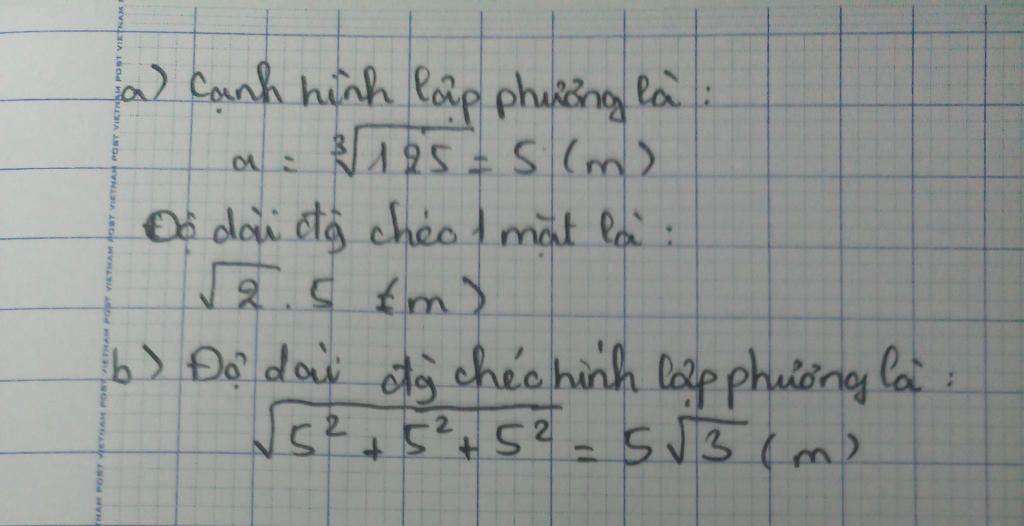 a) Cạnh hình lập phương là :
a = ∛125 = 5 (m)
Độ dài đg chéo 1 mặt là :
√2 . 5 (m)
b) Độ dài đg chéo hình lập phương là :
√5² + 5² + 5² = 5√3 (m)
VIETNAM POST VIETNAM POST VIETNAM POST VIETNAM POST VIETNAM POST VIETNAM